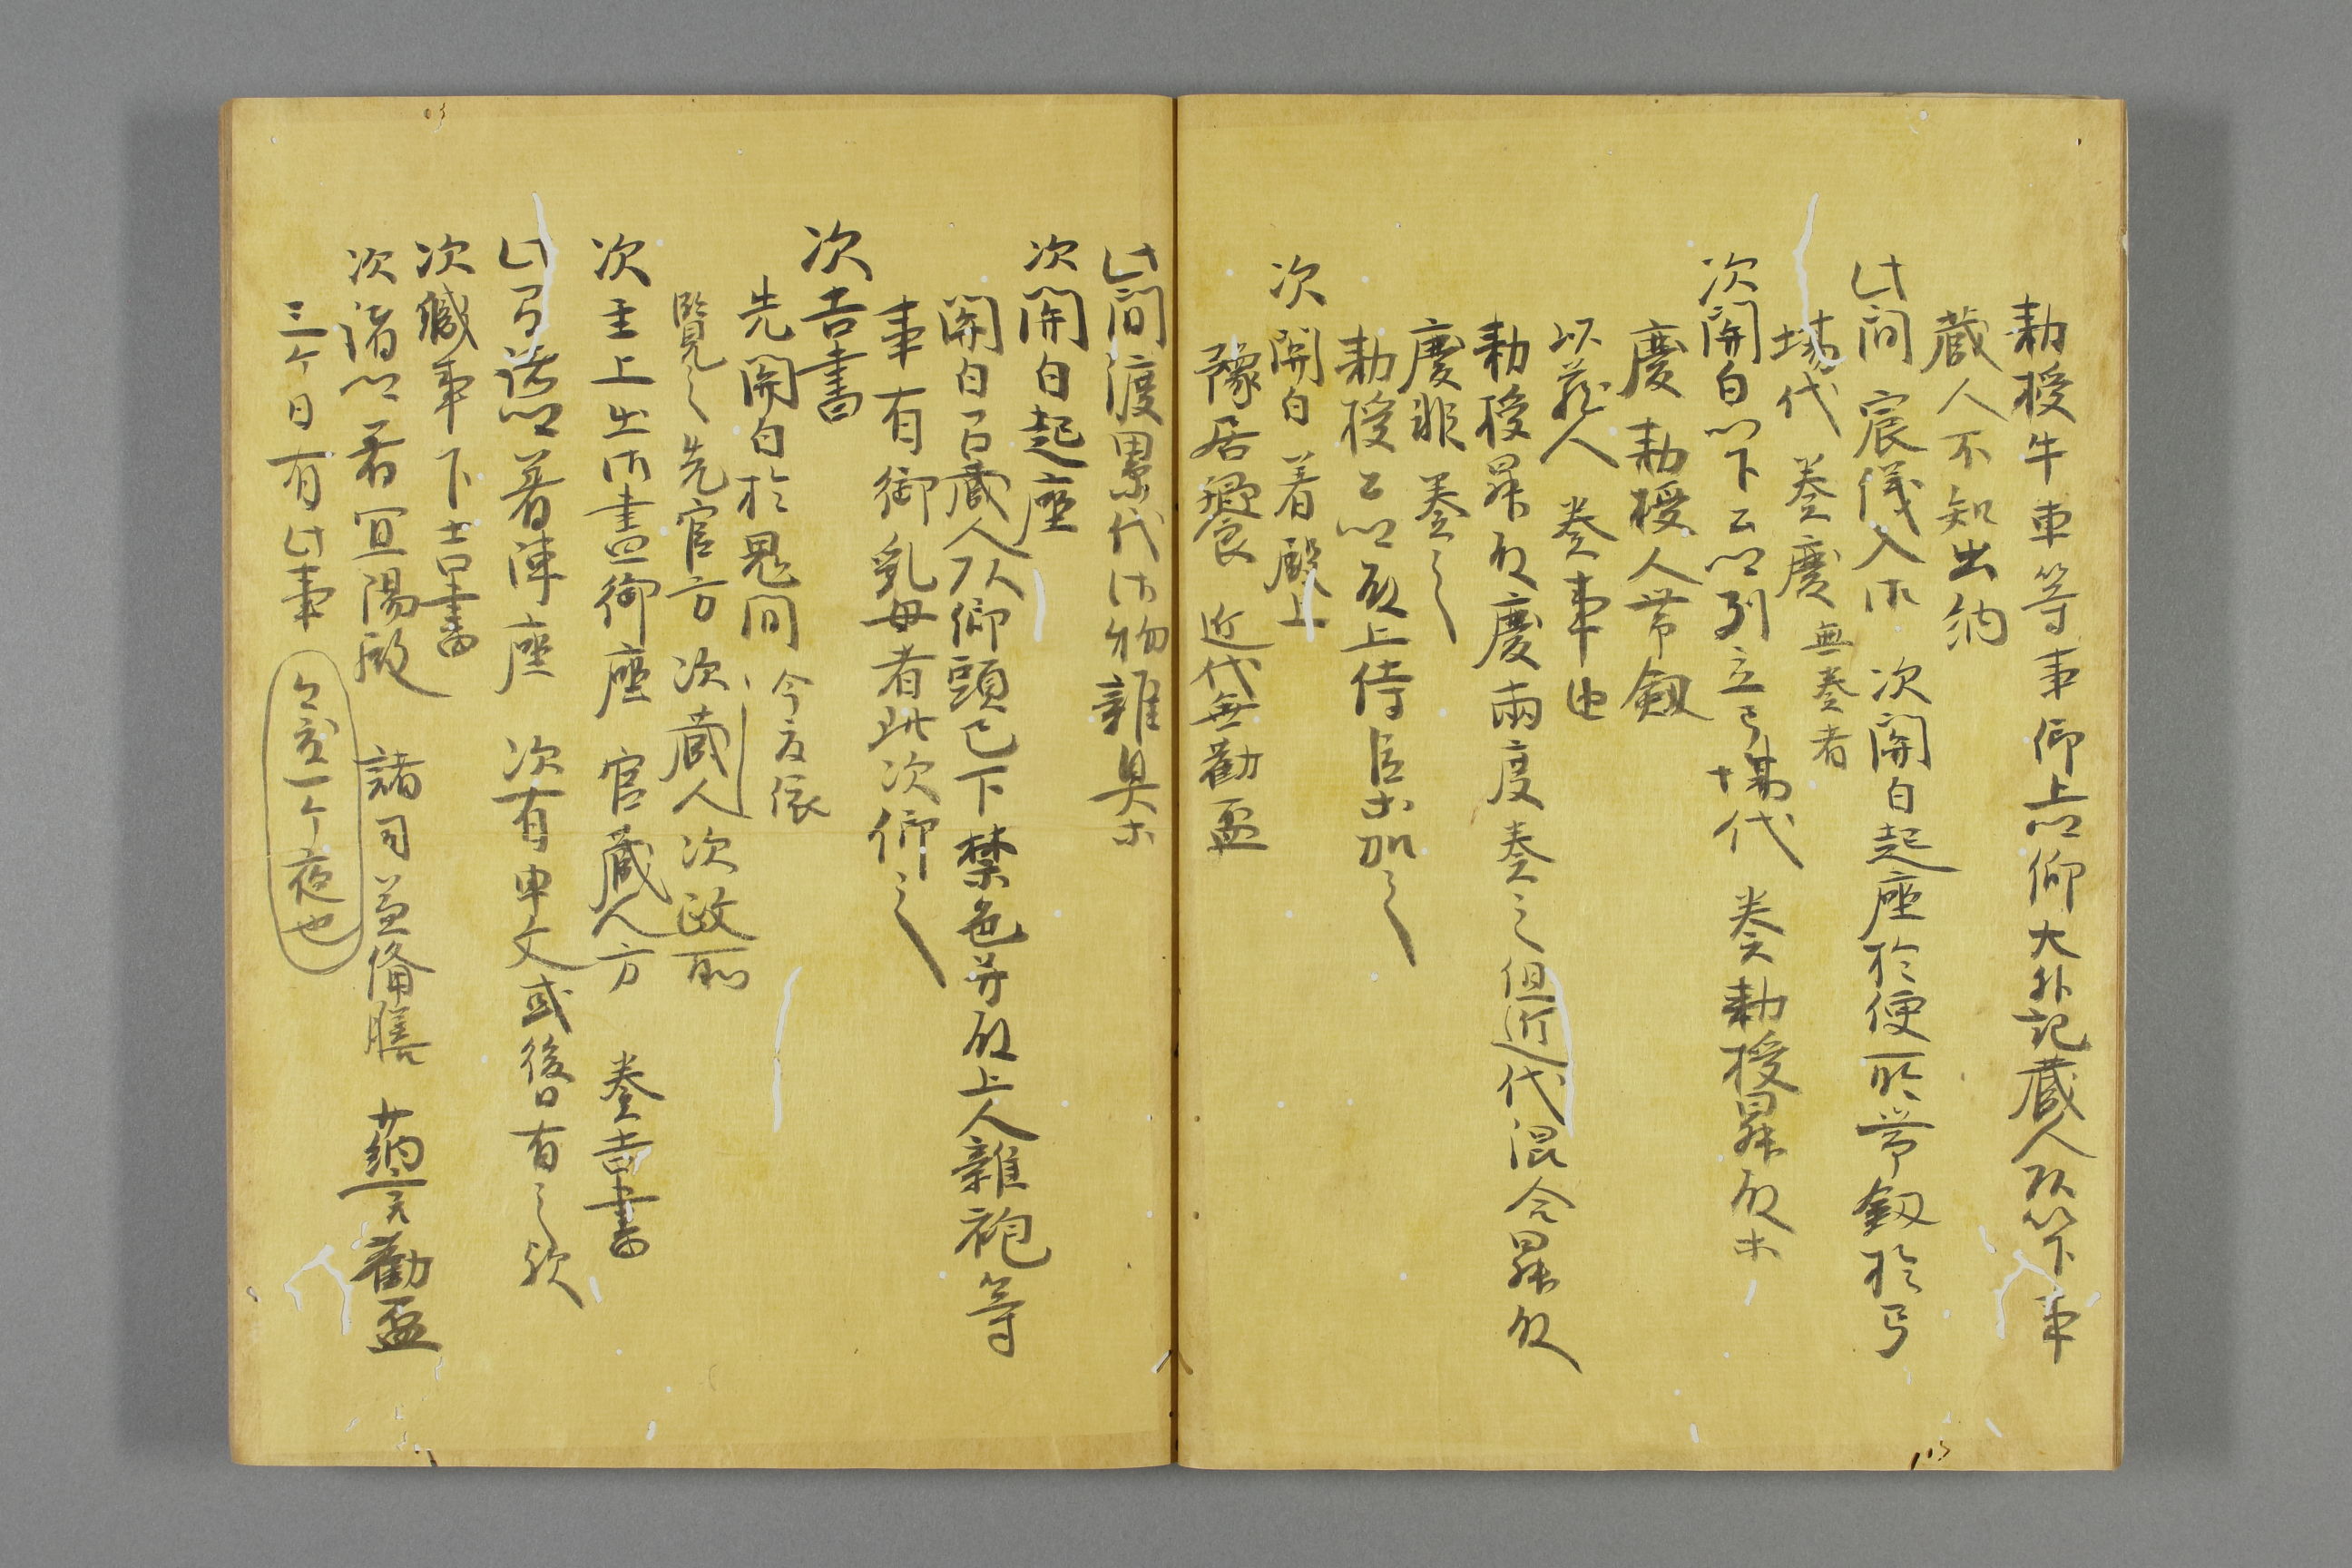 勅授牛車等事仰上卿仰大外記蔵人頭以下事
蔵人不知出納
此間 宸儀入御 次関白起座於便所帯釼於弓
場代 奏慶 無奏者
次関白以下公卿列立弓場代 奏勅授昇殿等
慶 勅授人帯剱
以蔵人 奏事也
勅授昇殿慶両度奏之但近代混合昇殿
慶非奏之
勅授公卿殿上侍臣等加之
次関白着殿上
豫居饗 近代無勧盃
此間渡累代御物雑具等
次関白起座
関白召蔵人頭仰頭已下禁色并殿上人雑袍等
事有御乳母者此次仰之
次吉書
先関白於鬼間 今度依
覧之先官方 次蔵人次政所
次主上出御昼御座 官蔵人方 奏吉書
此間諸卿着陣座 次有申文或後日有之歟
次職事下吉書
次諸卿着宜陽殿 諸司益備膳 納言勧盃
三ケ日有此事 一ケ夜也